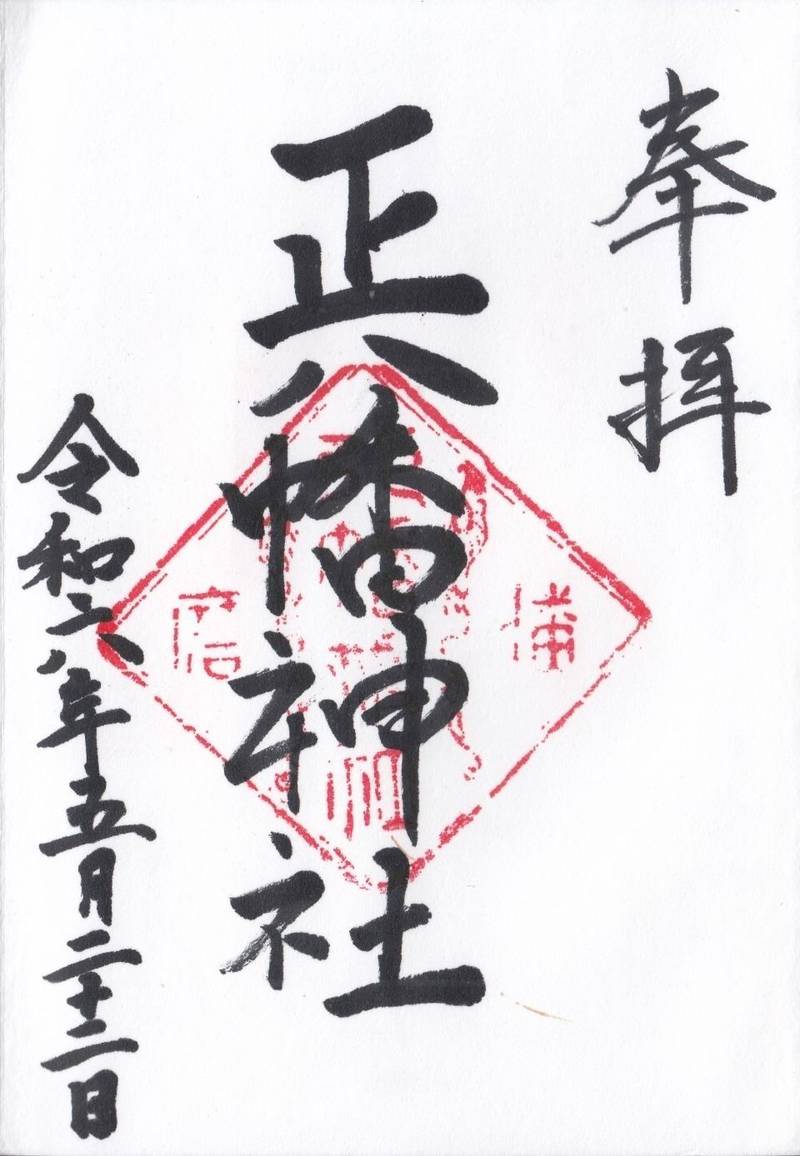 奉拝
正八幡神社
令和六年五月二十二日